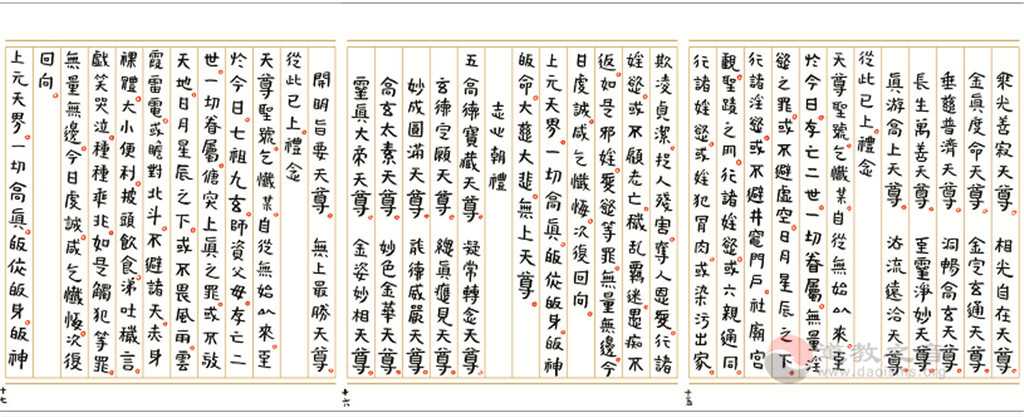 乘光善寂天尊 相光自在天尊
金眞度命天尊 金定玄通天尊
垂慈普濟天尊 洞暢高玄天尊
長生萬善天尊 至靈淨妙天尊
眞游高上天尊 沾流遠洽天尊
從此已上禮念
天尊聖號乞懺某自從無始以來至
於今日存亡二世一切眷屬無量淫
慾之罪或不避虛空日月星辰之下
行諸淫慾或不避井竈門戶社廟宮
觀聖蹟之所行諸婬慾或六親通同
行諸婬慾或婬犯骨肉或染污出家
十五
欺凌貞潔捉人殘害奪人恩愛行諸
婬慾或不顧亡穢乱羈迷愚痴不
返如是邪婬愛慾等罪無量無邊今
日虔誠咸乞懺悔次復回向
上元天界一切高眞皈依皈身皈神
皈命大慈大悲無上天尊
志心朝禮
五高德寶藏天尊 凝常轉念天尊
玄德定願天尊 總眞應見天尊
妙成圓滿天尊 能德威嚴天尊
高玄太素天尊 妙色金華天尊
靈眞大帝天尊 金姿妙相天尊
十六
開明旨要天尊 無上最勝天尊
從此已上禮念
天尊聖號乞懺某自從無始以來至
於今日七祖九玄師資父母存亡二
世一切眷屬儻突上眞之罪或不敬
天地日月星辰之下或不畏風雨雲
霞雷電或瞻對北斗不避諸天身
裸體大小便利披頭飲食涕吐穢言
戲笑哭泣種種乖非如是觸犯等罪
無量無邊今日虔誠咸乞懺悔次復
回向
上元天界一切高眞皈依皈身皈神
十七